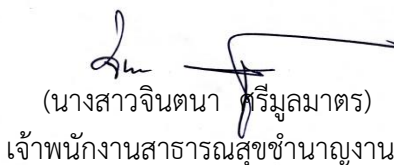 (นางสาวจินตนา ศรีมูลมาตร)
เจ้าพนักงานสาธารณสุขชำนาญงาน